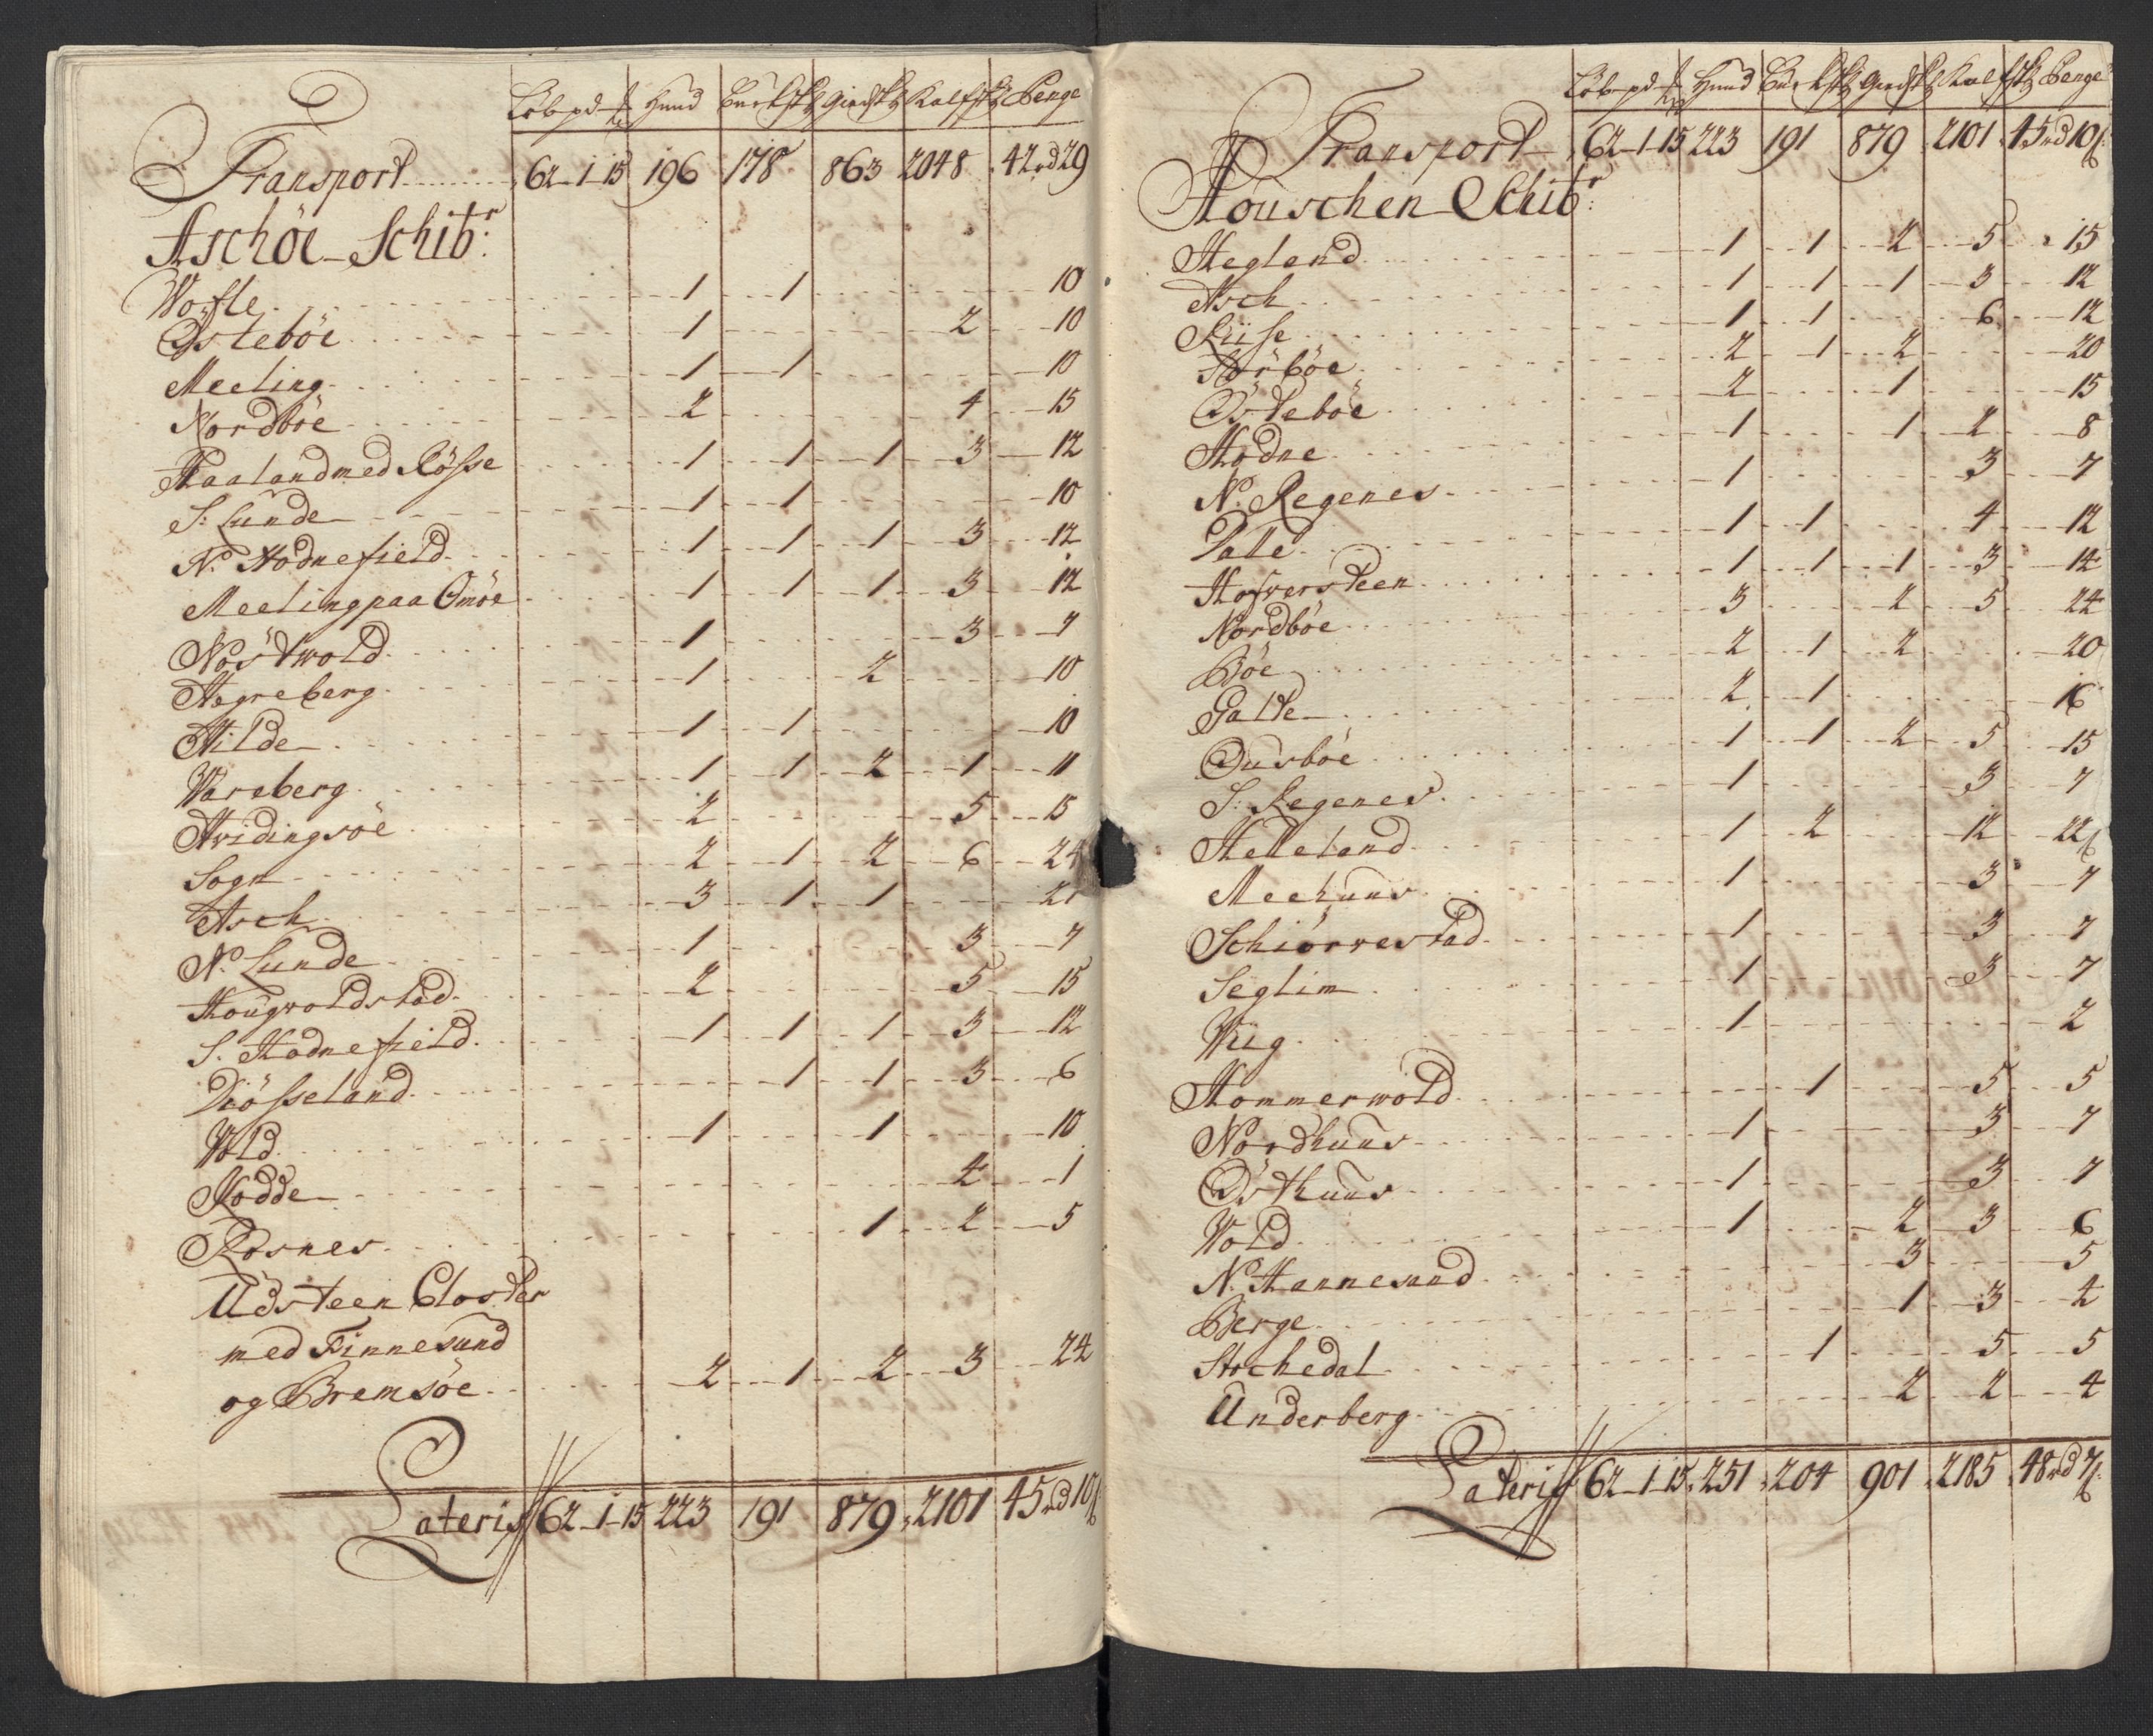 Löb pd Hud Buckskd Giedskd Kalfskd Penge
Transport 62-1-15 196 178 863 2048 42rd29
Aschöe Schibr:
Wostle 1 1 10
Östeböe 1 2 10
Meeling 1 1 10
Nordböe 2 4 15
Haaland med Rösse 1 1 1 3 12
S: Lunde 1 1 10
N. Hodnefield 1 1 1 3 12
Meeling paa Omöe 1 1 1 3 12
Nöstwold 1 3 7
Hegreberg 1 2 10
Hilde 1 1 10
Wareberg 1 1 2 1 11
Hvidingsöe 2 5 15
Sogn 2 1 2 6 24
Asch 3 1 1 21
N. Lunde 1 3 7
Hougwoldstad 2 5 15
S. Hodnefield 1 1 1 3 12
Diösseland 1 1 3 6
Wold 1 1 10
Rodde 4 1
Rosnes 1 2 5
Udsteen Closter
med Finnesand
og Bremsöe 2 1 2 3 24
Lateris 62-1-15 223 191 879 2101 45rd10s
Löb pd Hud Buckskd Giedskd Kalfskd Penge
Transport 62-1-15 223 191 879 2101 45rd10s
Houschen Schibr:
Hegland 1 1 2 5 15
Asch 1 1 1 3 12
Riise 1 1 6 12
Sörböe 2 1 2 20
Östeböe 2 1 15
Hodne 1 1 2 8
N. Regenes 1 3 7
Dalle 1 1 4 12
Hofversteen 1 1 1 3 14
Nordböe 3 2 5 24
Böe 2 1 2 20
Galte 2 1 16
Dusböe 1 1 2 5 15
S: Regenes 1 3 7
Helleland 1 2 12 22s
Meehuus 1 3 7
Schiörvestad 1 3 7
Seglim 1 3 7
Wiig 1 2
Hommerwold 1 5 5
Nordhuus 1 3 7
Östhuus 1 3 7
Wold 1 2 3 6
N. Hannesand 3 5
Berge 1 3 4
Stochedal 1 5 5
Underberg 2 2 4
Lateris 62-1-15 251 204 901 2185 48rd7s